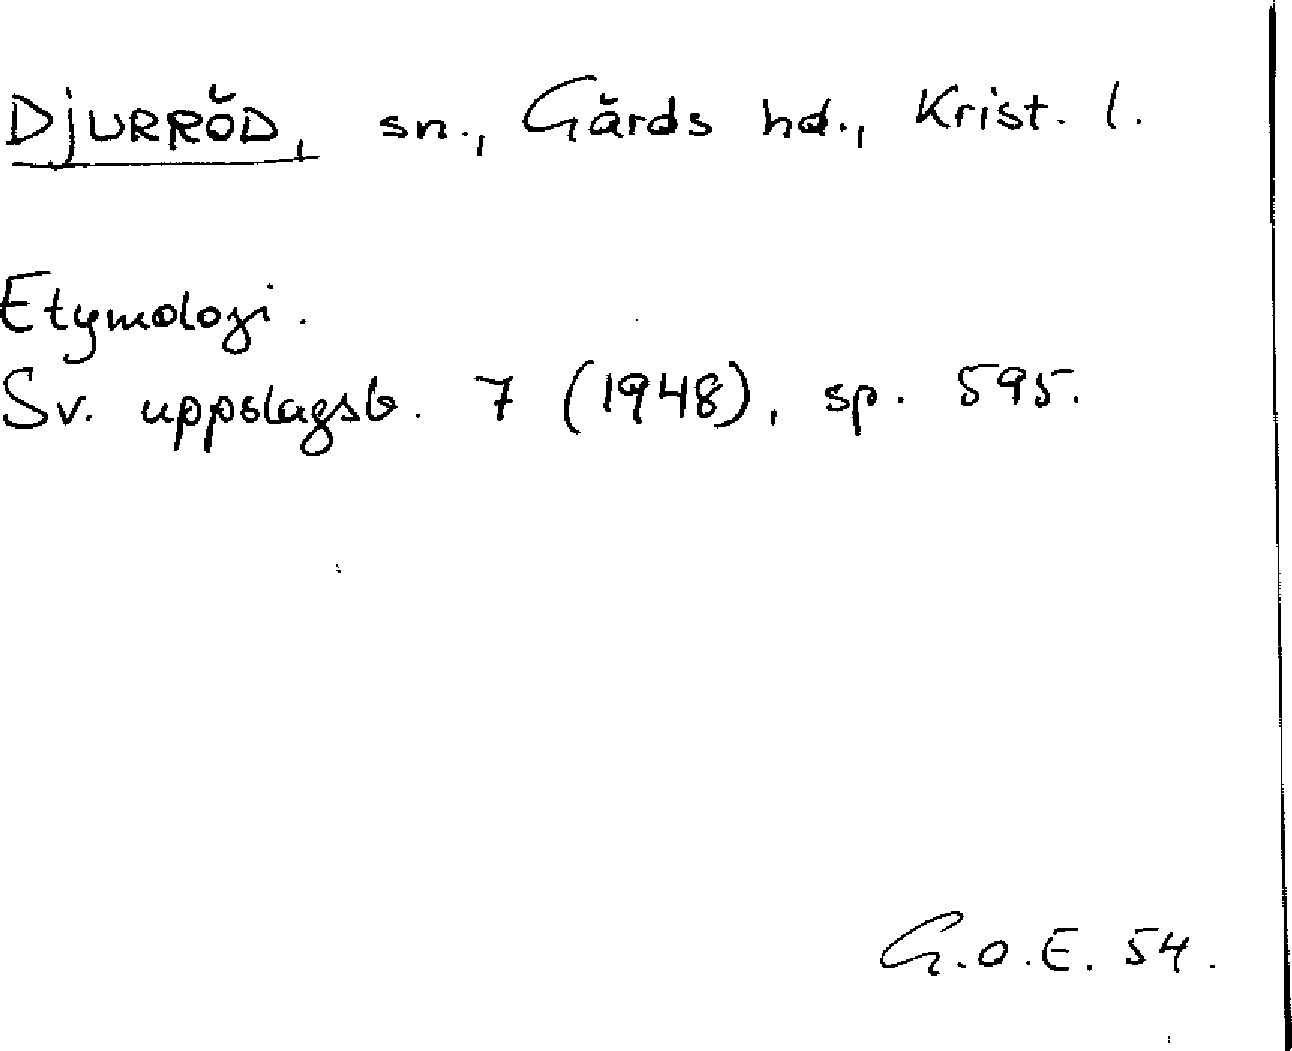 DJURRÖD, sn., Gärds hd., Krist. l.
Etymologi.
Sv. uppslagsb. 7 (1948), sp. 595.
G.O.E. 54.